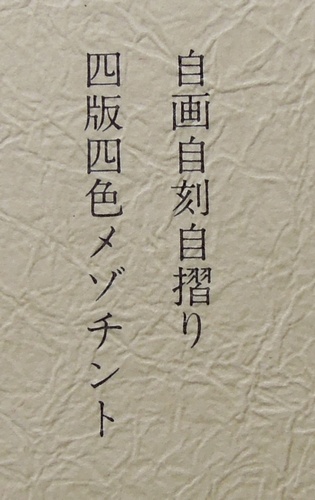 自画自刻自摺り
四版四色メゾチント